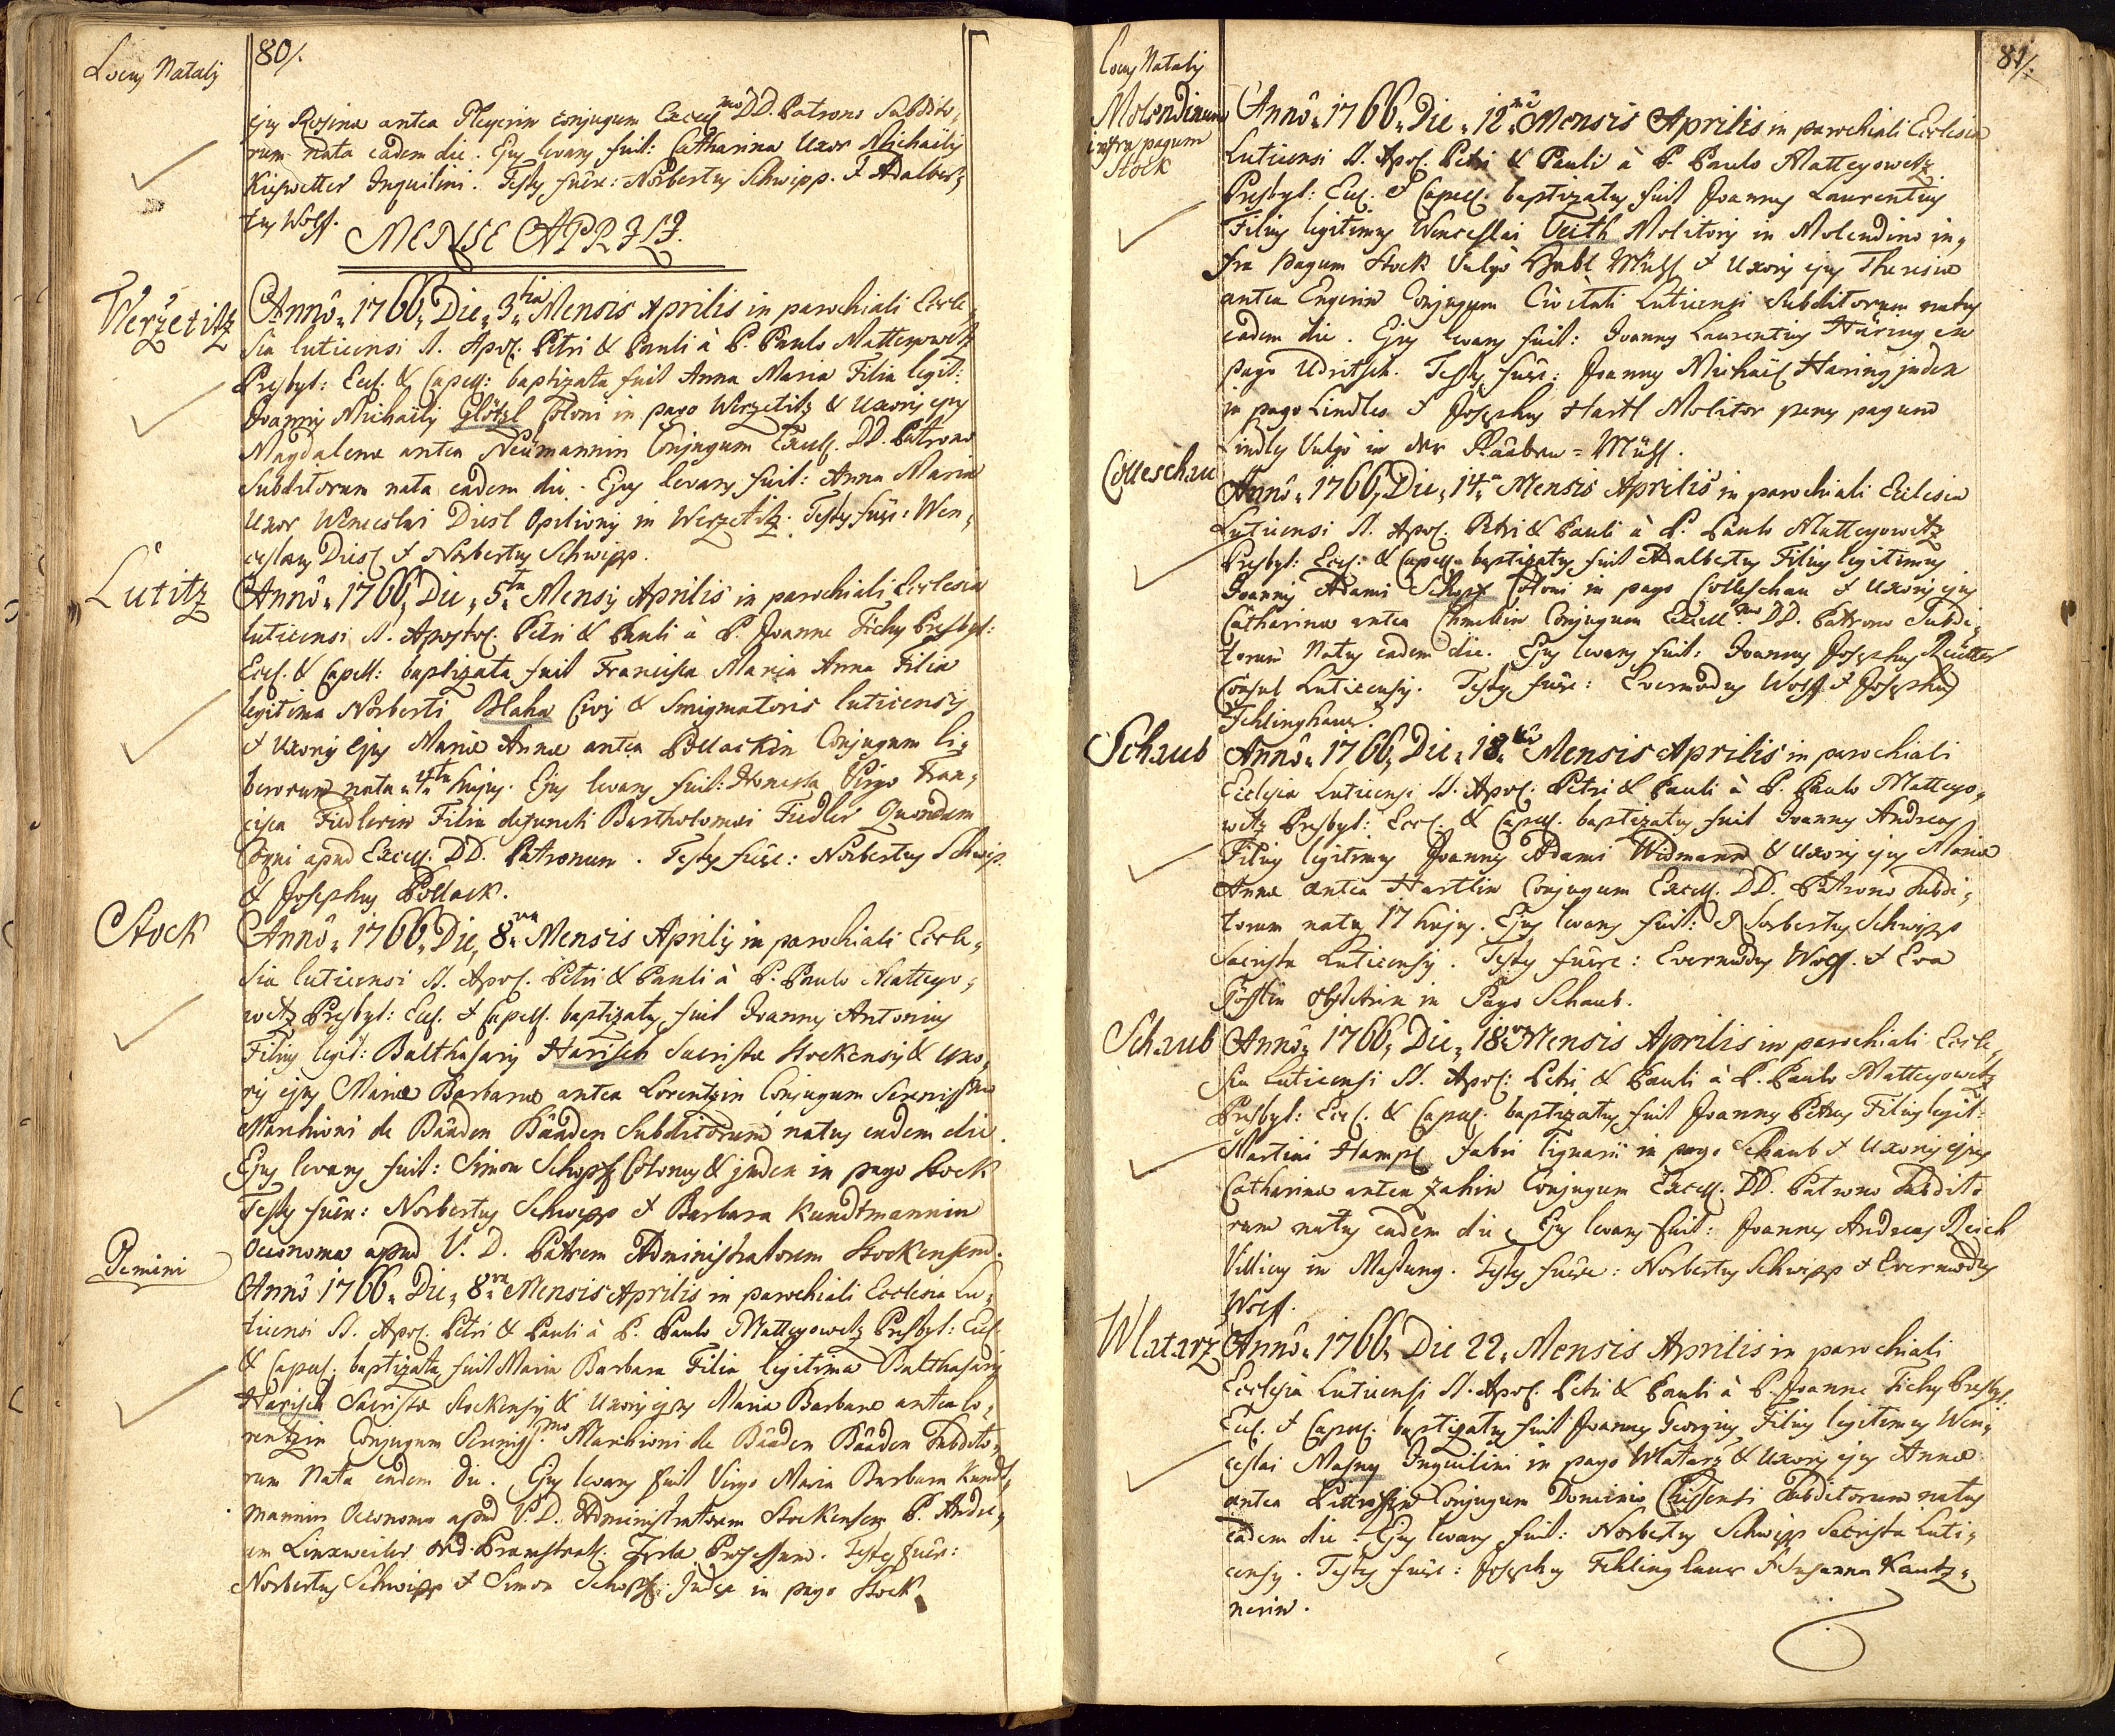 80/.
Locus Natalis
ejus Rosinae antea Pleyerin conjugum Excell mo DD. Patrono Subdito,
rum nata eadem die. Ejus levans fuit: Catharina Uxor Michaëlis
Kiswetter Inquilini. Testes fuêre: Norbertus Schwipp. & Adalber,
tus Wolf.
MENSE APRILI.
Werzetitz
Annô 1766 Die 3 tia Mensis Aprilis in parochiali Eccle,
sia luticensi SS. Apos. Petri & Pauli à P. Paulo Matteyowetz
Presbyt: Eccl. & Capell: baptizata fuit Anna Maria Filia legit:
Joannis Michaëlis Glötzl Coloni in pago Werzetitz & Uxoris ejus
Magdalenae antea Neümannin Conjugum Excell. DD. Patrono
Subditorum nata eadem die. Ejus levans fuit: Anna Maria
Uxor Wenceslai Diesl Opilionis in Werzetitz. Testes fuêre: Wen,
ceslaus Diesl & Norbertus Schwipp.
Lutitz
Annô 1766 Die 5 ta Mensis Aprilis in parochiali Ecclesia
luticensi SS. Apostol. Petri & Pauli à P. Joanne Tichy Presbyt:
Eccl. & Capell: baptizata fuit Francisca Maria Anna Filia
legitima Norberti Blaha Civis & Smigmatoris luticensis
& Uxoris ejus Mariae Annae antea Pollackin Conjugum li,
berorum nata 4 ta hujus. Ejus levans fuit: Honesta Virgo Fran,
cisca Fiedlerin Filia defuncti Bartholomaei Fiedler Quondam
apud Excell. DD. Patronum. Testes fuêre: Norbertus Schwip
& Josephus Pollack.
Stock
Annô 1766 Die 8 va Mensis Aprilis in parochiali Eccle,
sia luticensi SS. Apos. Petri & Pauli à P. Paulo Matteyo,
wetz Presbyt: Eccl. & Capell. baptizatus fuit Joannes Antonius
Filius legit: Balthasaris Harisch Sacristae Stockensis & Uxo,
ris ejus Mariae Barbarae antea Lorentzin Conjugum Serenissimo
Marchioni de Baaden Baaden Subditorum natus eadem die.
Ejus levans fuit: Simon Schopf Colonus & judex in pago Stock
Testes fuêre: Norbertus Schwipp & Barbara Kundtmannin
Oeconoma apud V. D. Patrem Administratorem Stockensem.
Gemini
Annô 1766 Die 8 va Mensis Aprilis in parochiali Ecclesia Lu,
ticensi SS. Apos. Petri & Pauli à P. Paulo Matteyowetz Presbyt: Eccl.
& Capell. baptizata fuit Maria Barbara Filia legitima Balthasaris
Harisch Sacristae Stockensis & Uxoris ejus Mariae Barbarae antea lo,
rentzin Conjugum Sereniss mo Marchioni de Baaden Baaden Subdito,
rum Nata eadem die. Ejus levans fuit Virgo Maria Barbara Kundt,
mannin Oeconoma apud V. D. Administratorem Stockensem P. Andre,
am Linxweiler Ord. Praemstrat. Teplae Professum. Testes fuêr:
Norbertus Schwipp & Simon Schopf Judex in pago Stock
81/.
Locus Natalis
Molendinum
infra pagum
Stock
Annô 1766 Die 12 mâ Mensis Aprilis in parochiali Ecclesia
Luticensi SS. Apos. Petri & Pauli à P. Paulo Matteyowetz
Presbyt: Eccl. & Capell. baptizatus fuit Joannes Laurentius
Filius legitimus Wenceslai Veith Molitoris in Molendino in,
fra pagum Stock Vulgo Habl Mühl & Uxoris ejus Theresiae
antea Engerin Conjugum Civitati Luticensi Subditorum natus
eadem die. Ejus levans fuit: Joannes Laurentius Häring ex
pago Udritsch. Testes fuêre: Joannes Michaël Häring judex
in pago Lindles & Josephus Hartl Molitor penes pagum
Lindles Vulgo in der Raaben=Mühl.
Colleschau
Annô 1766 Die 14 a Mensis Aprilis in parochiali Ecclesia
Luticensi SS. Apos. Petri & Pauli à P. Paulo Matteyowetz
Presbyt: Eccl: & Capell. baptizatus fuit Adalbertus Filius legitimus
Joannis Adami Schopf Coloni in pago Colleschau & Uxoris ejus
Catharinae antea Conjugum Excell mo DD. Patrono Subdi,
torum Natus eadem die. Ejus levans fuit: Joannes Josephus Reütter
Consul Luticensis. Testes fuêre: Evermodus Wolf & Josephus
Fehlinghaur.
Schaub
Annô 1766 Die 18 va Mensis Aprilis in parochiali
Ecclesia Luticensi SS. Apos. Petri & Pauli à P. Paulo Matteyo,
wetz Presbyt: Eccl. & Capell. baptizatus fuit Joannes Andreas
Filius legitimus Joannis Adami Widmann & Uxoris ejus Mariae
Annae antea Hartlin Conjugum Excell. DD. Patrono Subdi,
torum natus 17 hujus. Ejus levans fuit: Norbertus Schwipp
Sacrista Luticensis. Testes fuêre: Evermodus Wolf. & Eva
obstetrix in Pago Schaub.
Schaub
Annô 1766 Die 18 va Mensis Aprilis in parochiali Eccle,
sia Luticensi SS. Apos: Petri & Pauli à P. Paulo Matteyowetz
Presbyt: Eccl. & Capell. baptizatus fuit Joannes Petrus Filius legit:
Martini Hampl fabri lignarii in pago Schaub & Uxoris ejus
Catharinae antea Zahin Conjugum Excell. DD. Patrono Subdito
rum natus eadem die Ejus levans fuit: Joannes Andreas Reich
Villicus in Mastung. Testes fuêre: Norbertus Schwipp & Evermodus
Wolf.
Wlatarz
Annô 1766 Die 22 Mensis Aprilis in parochiali
Ecclesia Luticensi SS. Apos. Petri & Pauli à P. Joanne Tichy Presbyt.
Eccl. & Capell. baptizatus fuit Joannes Georgius Filius legitimus Wen,
ceslai Masny Inquilini in pago Wlatarz & Uxoris ejus Annae
antea Conjugum Dominio Chissensi Subditorum natus
eadem die. Ejus levans fuit: Norbertus Schwipp Sacrista Luti,
censis. Testes fuêre: Josephus Fehlinghaur & Susanna Kautz,
nerin.